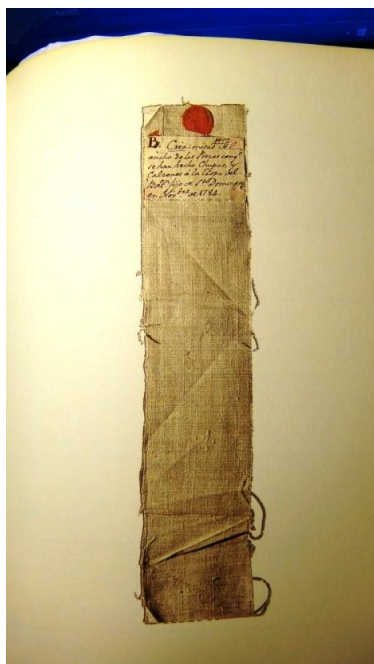 B. Crea: mitad del
ancho de las Piezas conq.e
se han hecho Chupas, y
Calzones à la Tropa del
Bat.n fijo de S.to Domingo,
en Nov.bre de 1784.